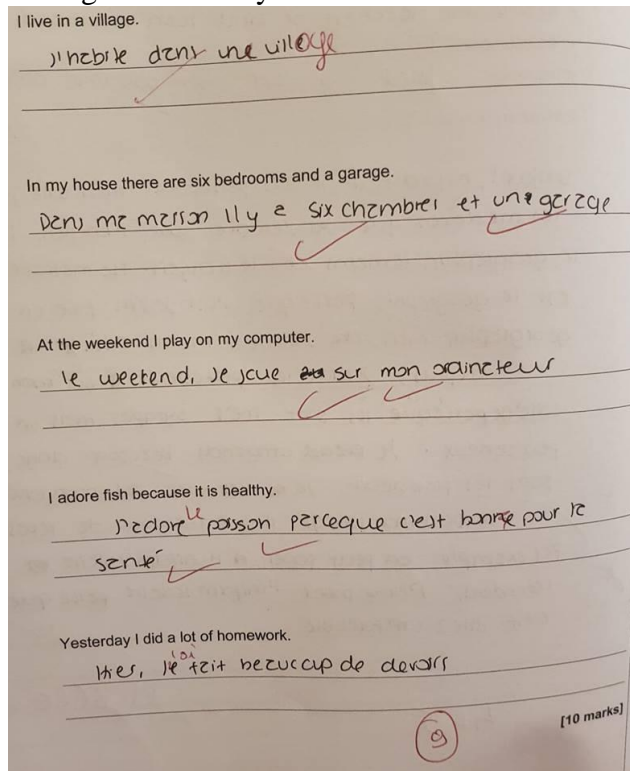 I live in a village.
J'habite dans une village
In my house there are six bedrooms and a garage.
Dans ma maison Il y a six chambres et une garage
At the weekend I play on my computer.
le weekend, Je joue sur mon ordinateur
I adore fish because it is healthy.
le
J'adore poisson parceque c'est bonne pour la
santé
Yesterday I did a lot of homework.
Hier, Je fait beaucoup de devoirs
9
[10 marks]